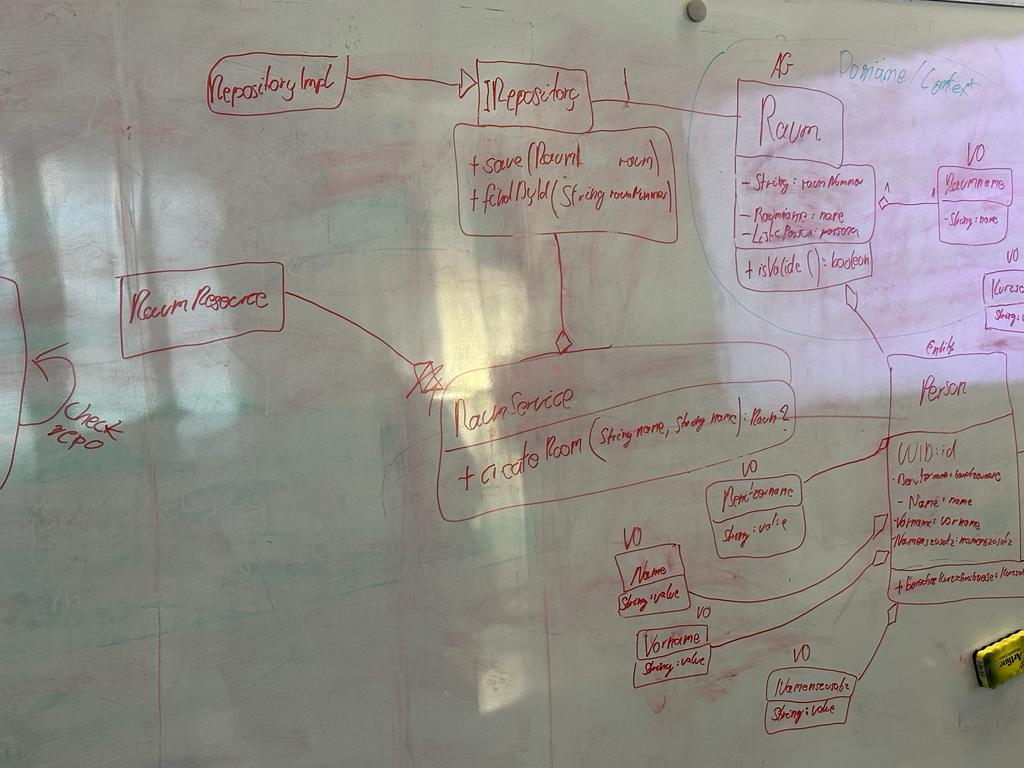 RepositoryImpl
IRepository
+ save (Raum1 raum)
+ findById (String raumNummer)
AG
Domäne / Context
Raum
- String : raumNummer
- Raumname : name
- List<Person> : personen
+ isValide () : boolean
VO
Raumname
- String : name
VO
String :
RaumResource
check
repo
RaumService
+ createRoom (String name, String name) : Raum ?
Entity
Person
UUID : id
- Benutzername : benutzername
- Name : name
- Vorname : vorname
- Namenszusatz : namenszusatz
VO
Benutzername
String : value
VO
Name
String : value
VO
Vorname
String : value
VO
Namenszusatz
String : value
Artline